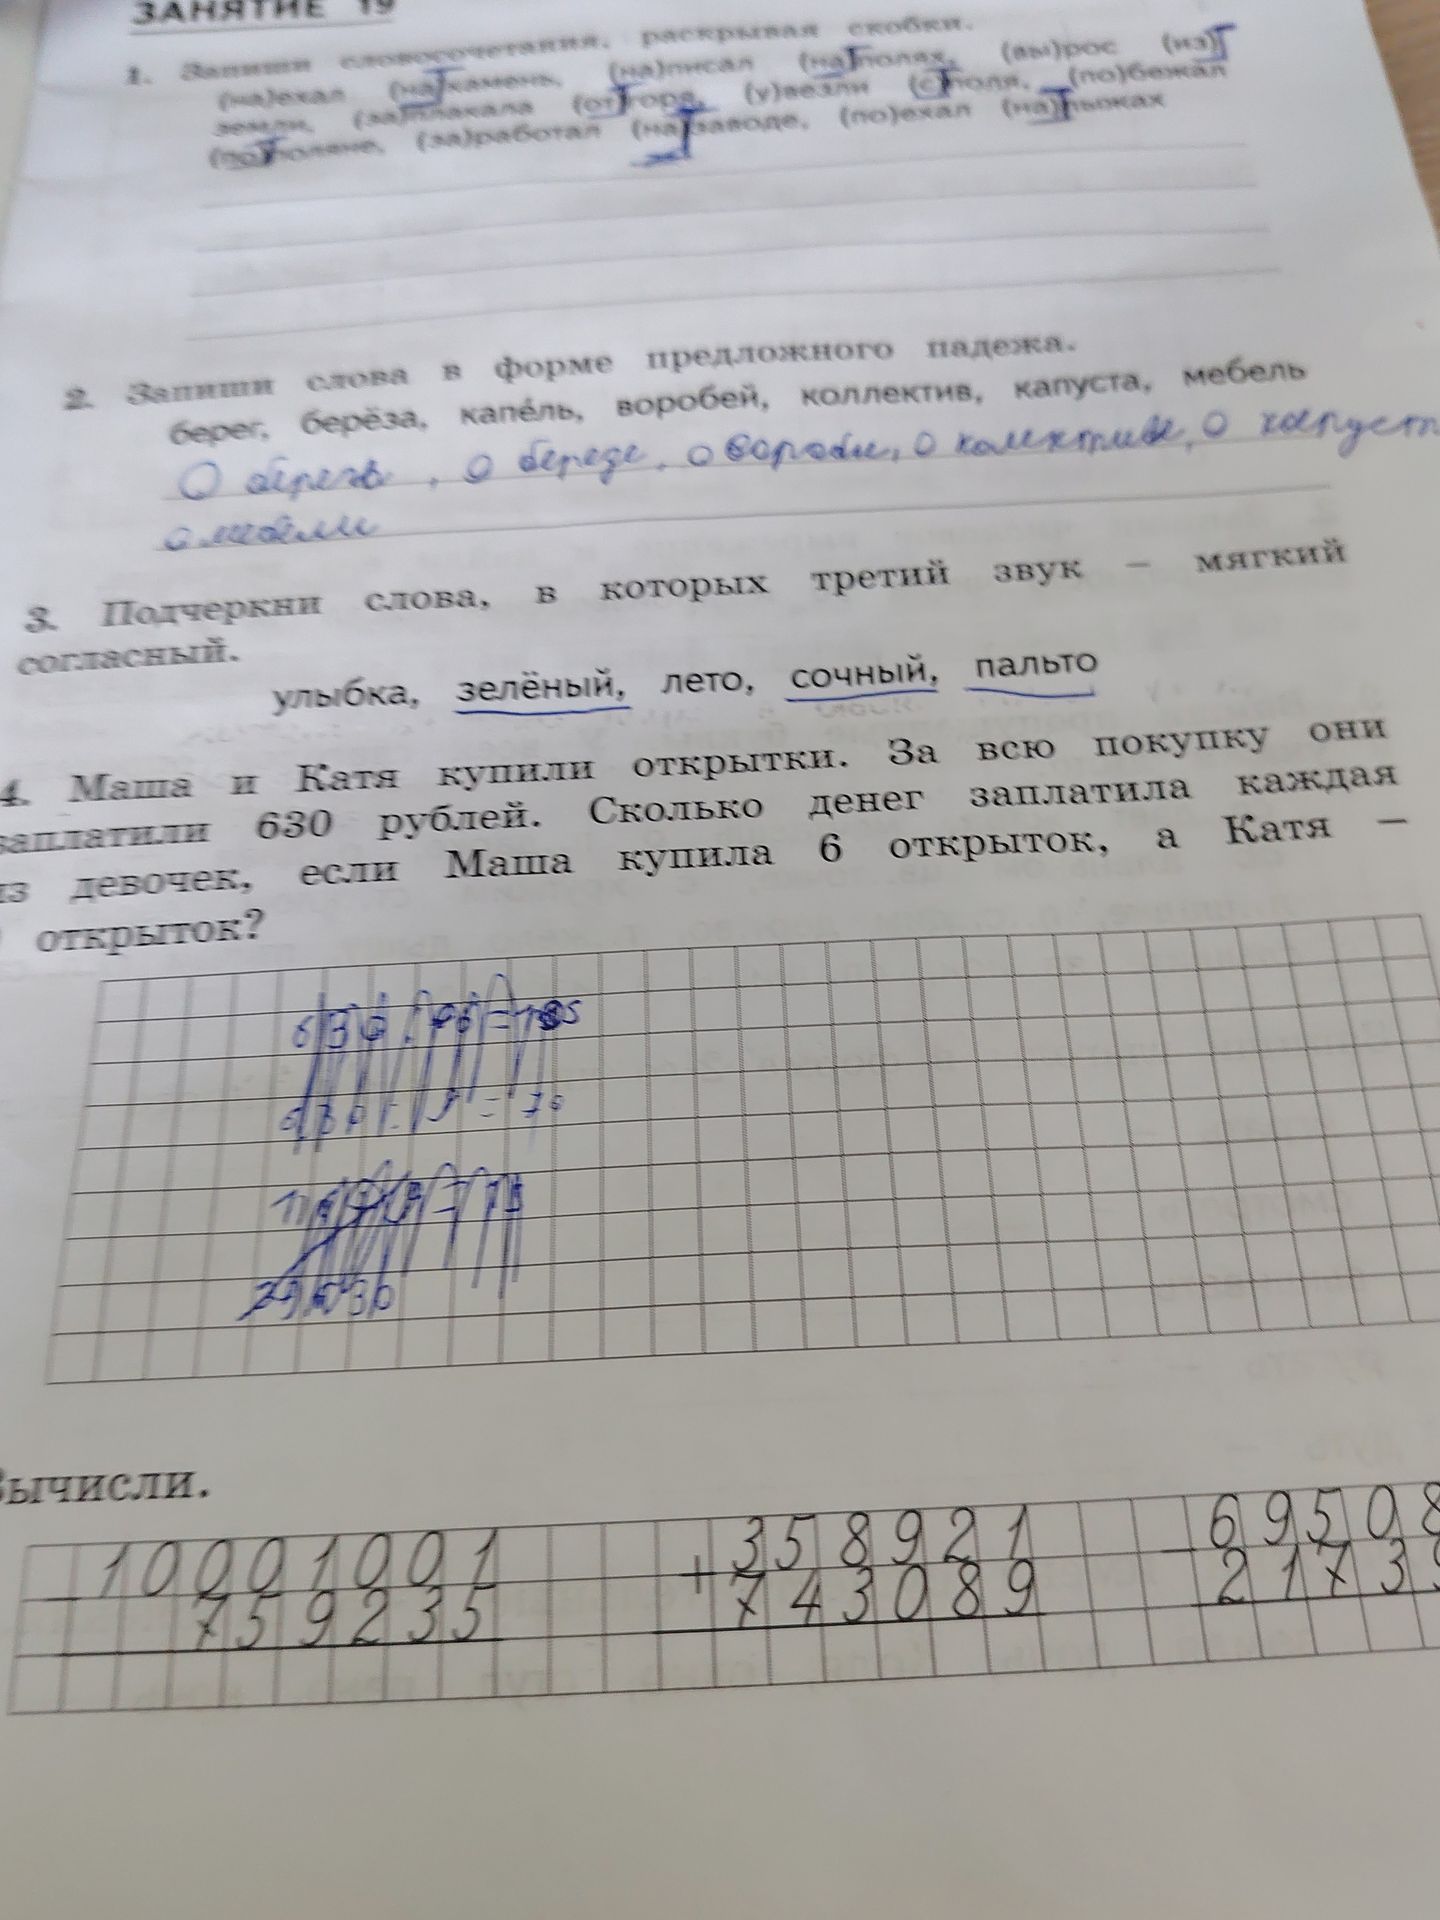 ЗАНЯТИЕ 19
1. Запиши словосочетания, раскрывая скобки.
(на)ехал (на)камень, (на)писал (на)полях, (вы)рос (из)
земли, (за)плакала (от)горя, (у)везли (с)поля, (по)бежал
(по)поляне, (за)работал (на)заводе, (по)ехал (на)лыжах
2. Запиши слова в форме предложного падежа.
берег, берёза, капе́ль, воробей, коллектив, капуста, мебель
О береге, о березе, о воробье, о колективе, о капуст
о мебели
3. Подчеркни слова, в которых третий звук – мягкий
согласный.
улыбка, зелёный, лето, сочный, пальто
4. Маша и Катя купили открытки. За всю покупку они
заплатили 630 рублей. Сколько денег заплатила каждая
из девочек, если Маша купила 6 открыток, а Катя –
открыток?
630 : 6 = 105
630 : 9 = 70
Вычисли.
- 10001001 + 358921 - 69508
759235 743089 2173